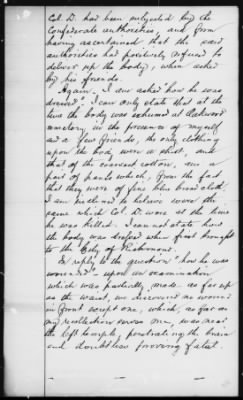 Col. D. had been subjected by the
Confederate authorities, and from
having ascertained that the said
authorities had positively refused to
deliver up the body, when asked
by his friends.
Again, I am asked how he was
dressed". I can only state that at the
time the body was exhumed at Oakwood
cemetery, in the presence of myself
and a few friends, the only clothing
upon the body were a shirt, and
that of the coarsest cotton, and a
pair of pants which, from the fact
that they were of fine blue broad cloth,
I am inclined to believe were the
same which Col. D. wore at the time
he was killed. I cannot state how
the body was dressed when first brought
to the City of Richmond.
In reply to the question "how he was
wounded", upon an examination
which was partially made as far up
as the waist, we discovered no wound
in front except one, which, as far as
my recollection serves me, was near
the left temple, penetrating the brain
and doubtless proving fatal.